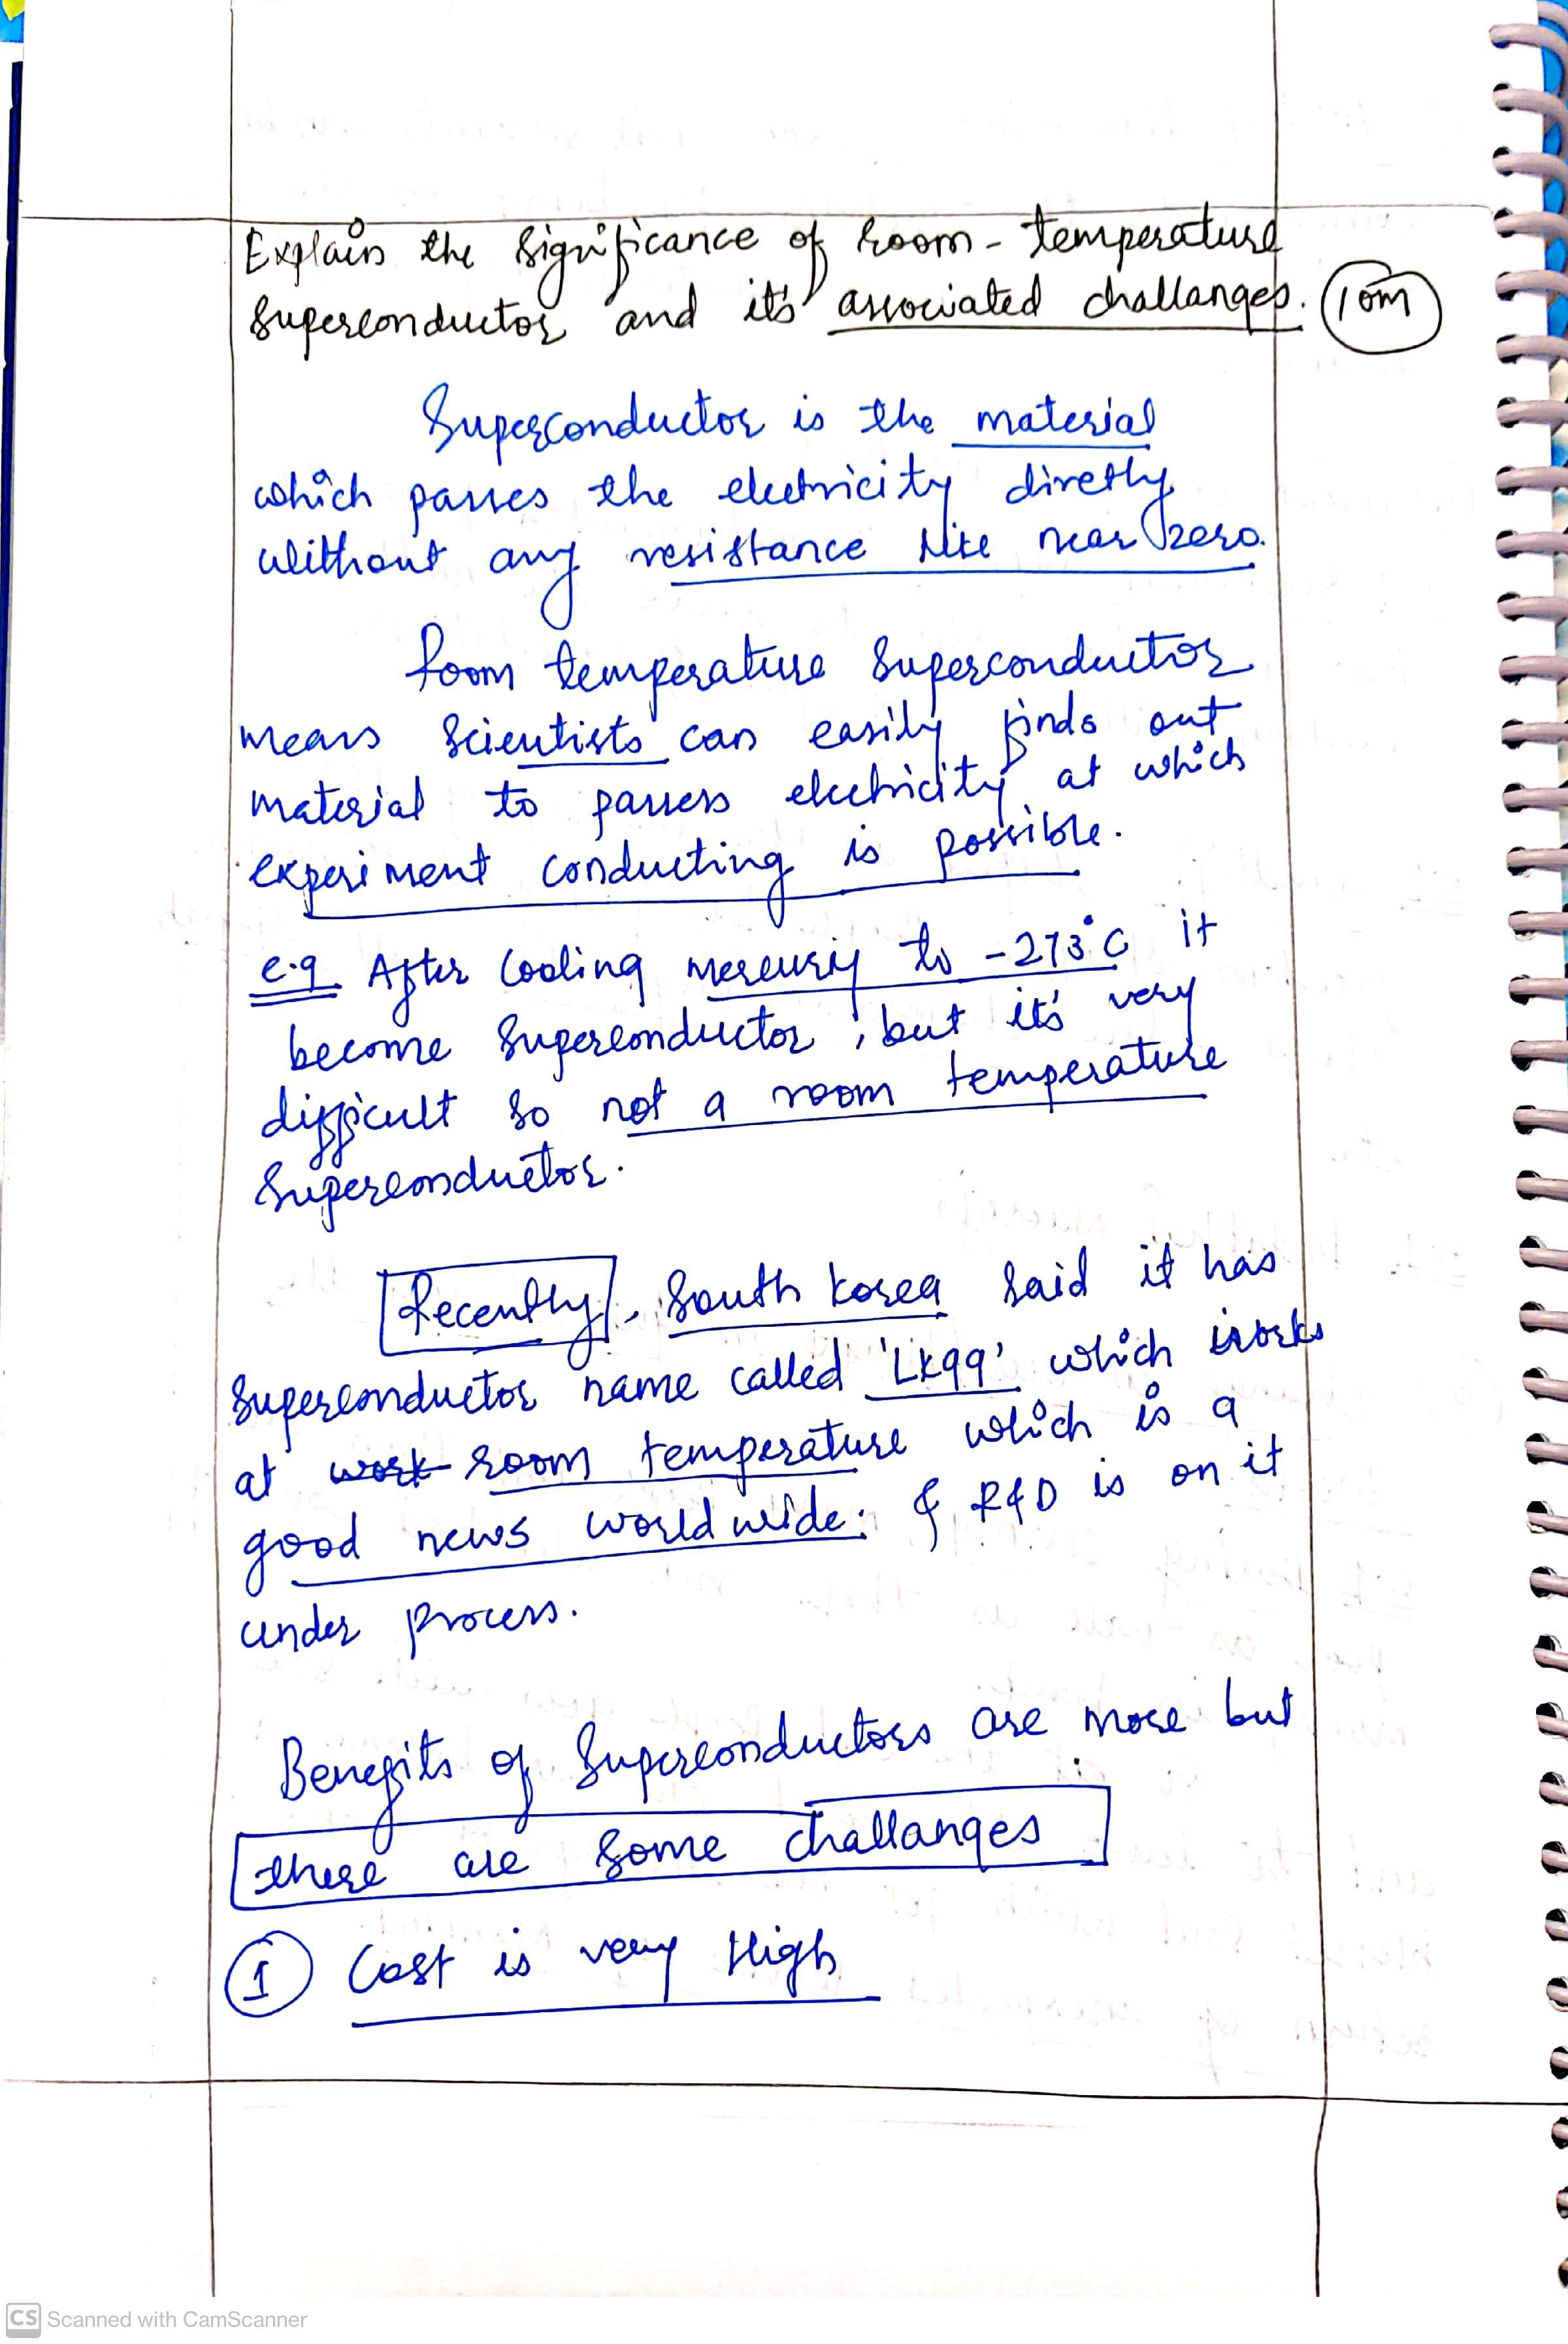 Explain the significance of room-temperature
superconductor and it's associated challanges. 10m
Superconductor is the material
which passes the electricity directly
without any resistance like near zero.
Room temperature superconductor
means scientists can easily finds out
material to passess electricity at which
experiment conducting is possible.
e.g After cooling mercury to -273°C it
become superconductor, but it's very
difficult so not a room temperature
superconductor.
Recently, South Korea said it has
superconductor name called 'LK99' which works
at work room temperature which is a
good news worldwide. & R&D is on it
under process.
Benefits of Superconductors are more but
there are some challanges
1 Cost is very High
CS Scanned with CamScanner